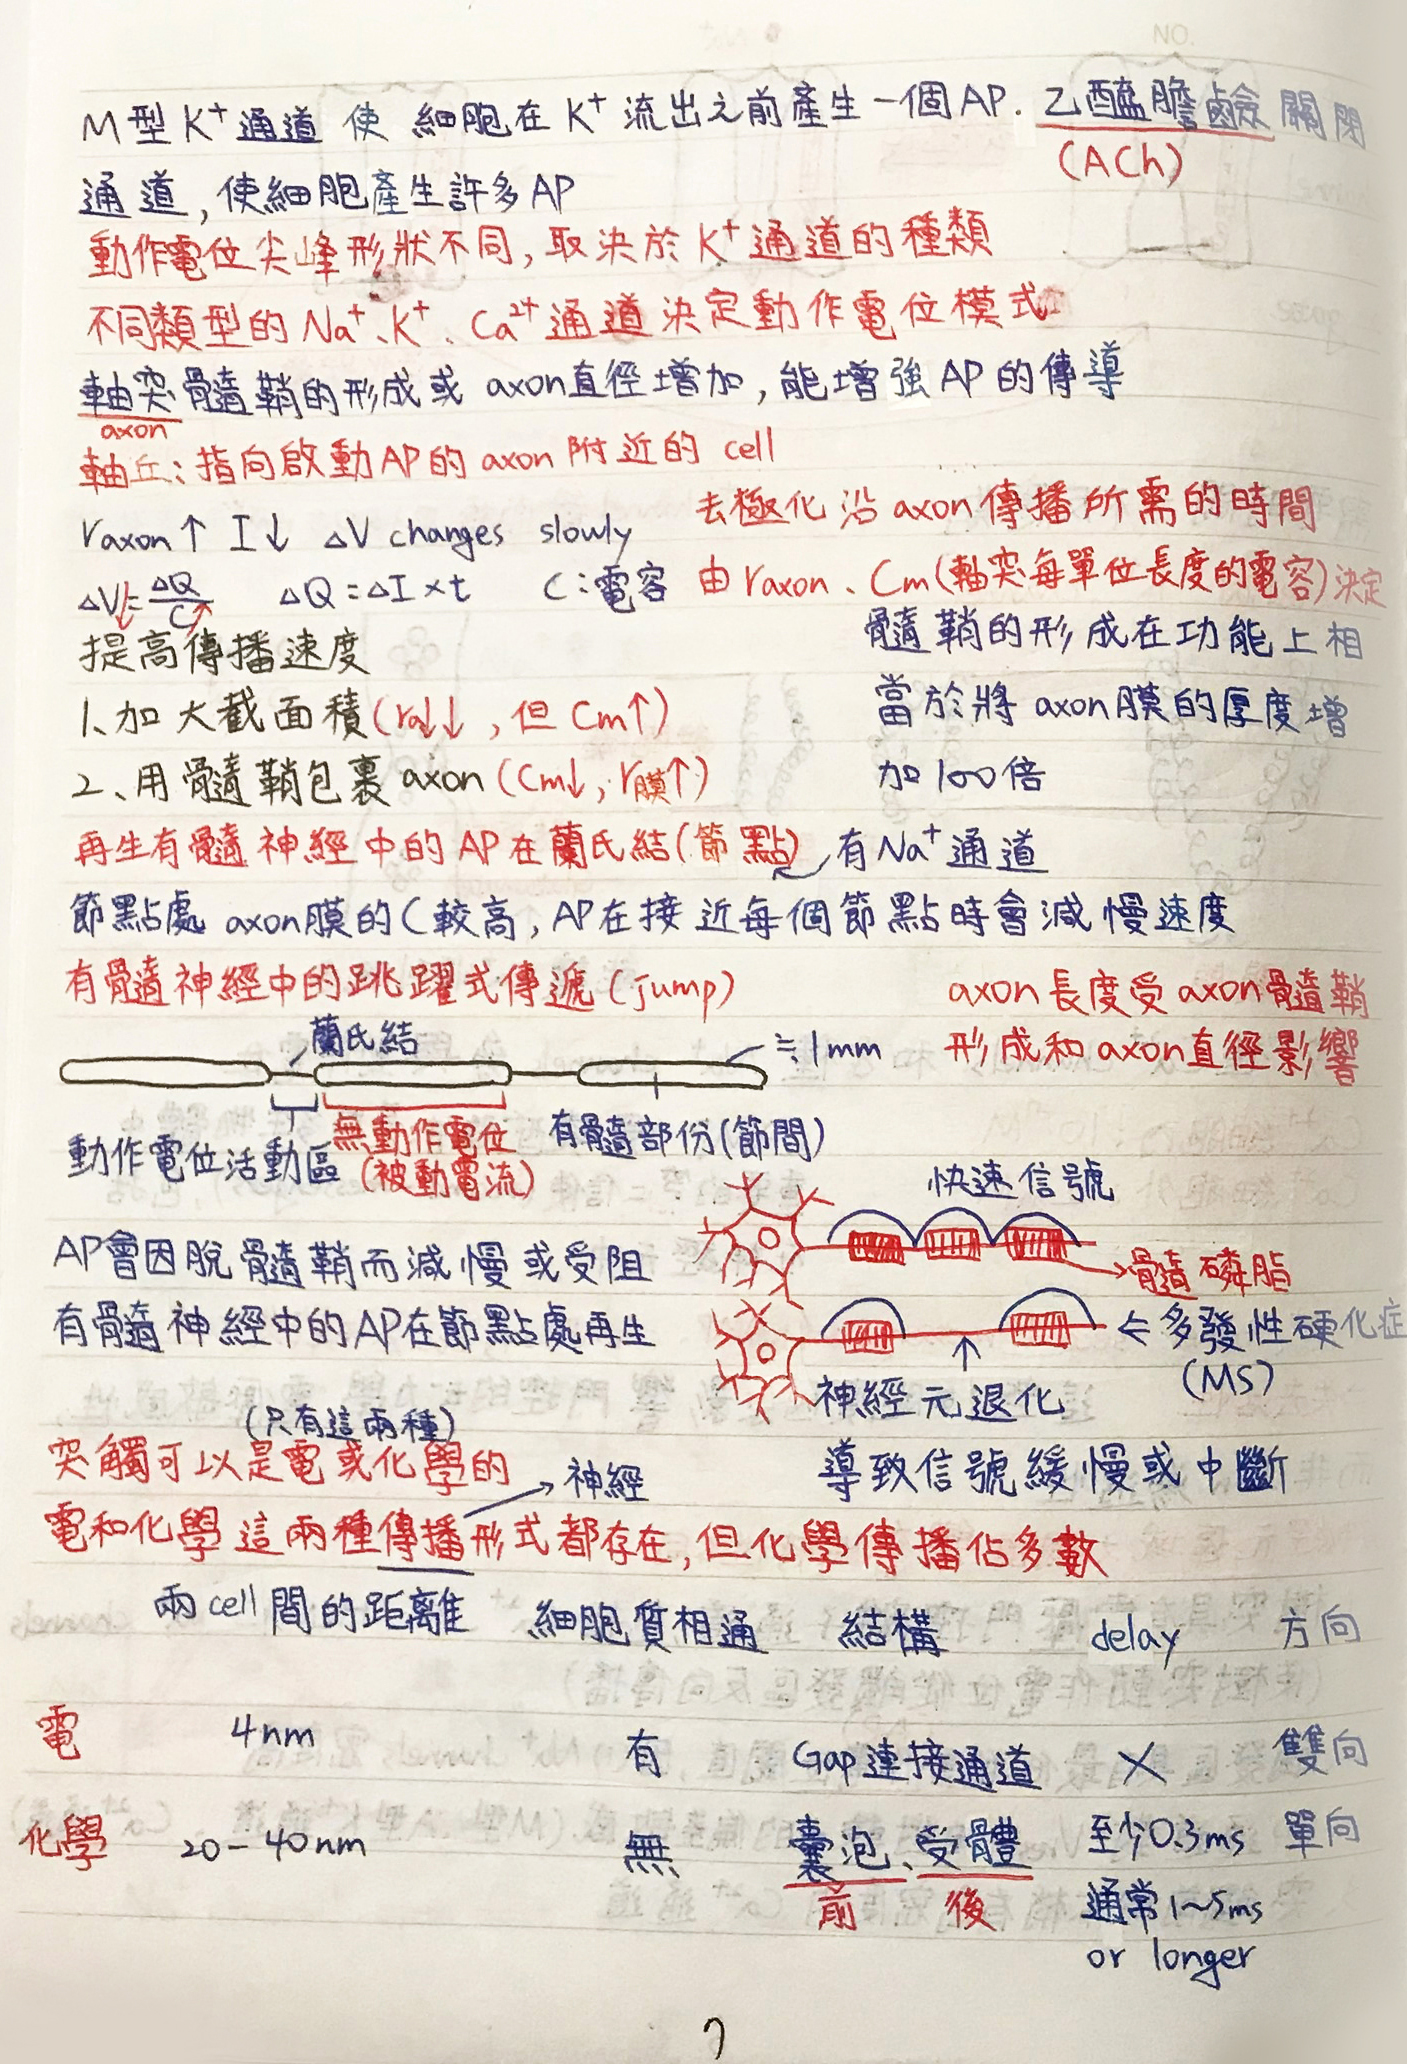 NO.
M型K⁺通道 使 細胞在K⁺流出之前產生一個AP. 乙醯膽鹼關閉
(ACh)
通道, 使細胞產生許多AP
動作電位尖峰形狀不同, 取決於K⁺通道的種類
不同類型的Na⁺、K⁺、Ca²⁺通道決定動作電位模式
軸突髓鞘的形成或 axon直徑增加, 能增強AP的傳導
axon
軸丘: 指向啟動AP的axon附近的 cell
raxon↑ I↓ △V changes slowly
△V↓=△Q/C↑ △Q=△I×t C:電容
去極化沿axon傳播所需的時間
由raxon、Cm(軸突每單位長度的電容)決定
提高傳播速度
1、加大截面積(ra↓↓, 但Cm↑)
2、用髓鞘包裹axon(Cm↓, r膜↑)
髓鞘的形成在功能上相
當於將axon膜的厚度增
加100倍
再生有髓神經中的AP在蘭氏結(節點) 有Na⁺通道
節點處 axon膜的C較高, AP在接近每個節點時會減慢速度
有髓神經中的跳躍式傳遞(jump)
axon長度受axon髓鞘
形成和axon直徑影響
蘭氏結
≒1mm
動作電位活動區
無動作電位
(被動電流)
有髓部份(節間)
快速信號
髓磷脂
AP會因脫髓鞘而減慢或受阻
有髓神經中的AP在節點處再生
←多發性硬化症
(MS)
神經元退化
導致信號緩慢或中斷
(只有這兩種)
突觸可以是電或化學的
神經
電和化學這兩種傳播形式都存在, 但化學傳播佔多數
兩cell間的距離 細胞質相通 結構 delay 方向
電 4nm 有 Gap連接通道 × 雙向
化學 20-40nm 無 囊泡、受體 至少0.3ms 單向
前 後 通常1~5ms
or longer
7